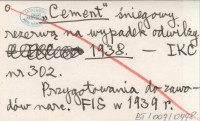 „Cement" śniegowy
rezerwą na wypadek odwilży
1938. — IKC
nr 302.
Przygotowania do zawo-
dów narc. FIS w 1939 r.